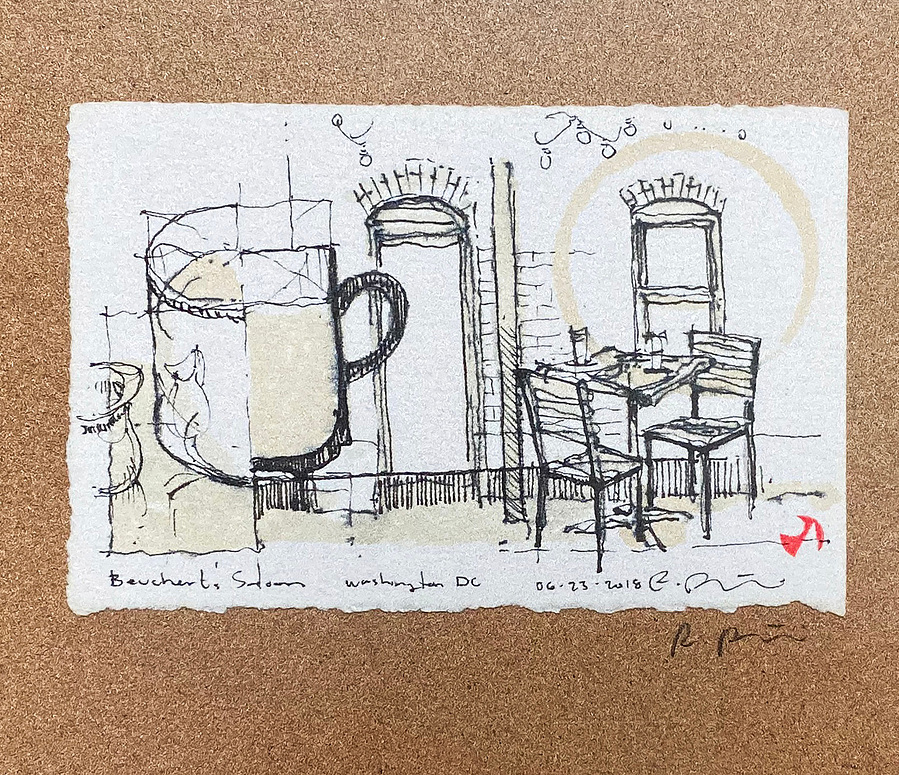 Beuchert's Saloon Washington DC 06-23-2018 R.
R.